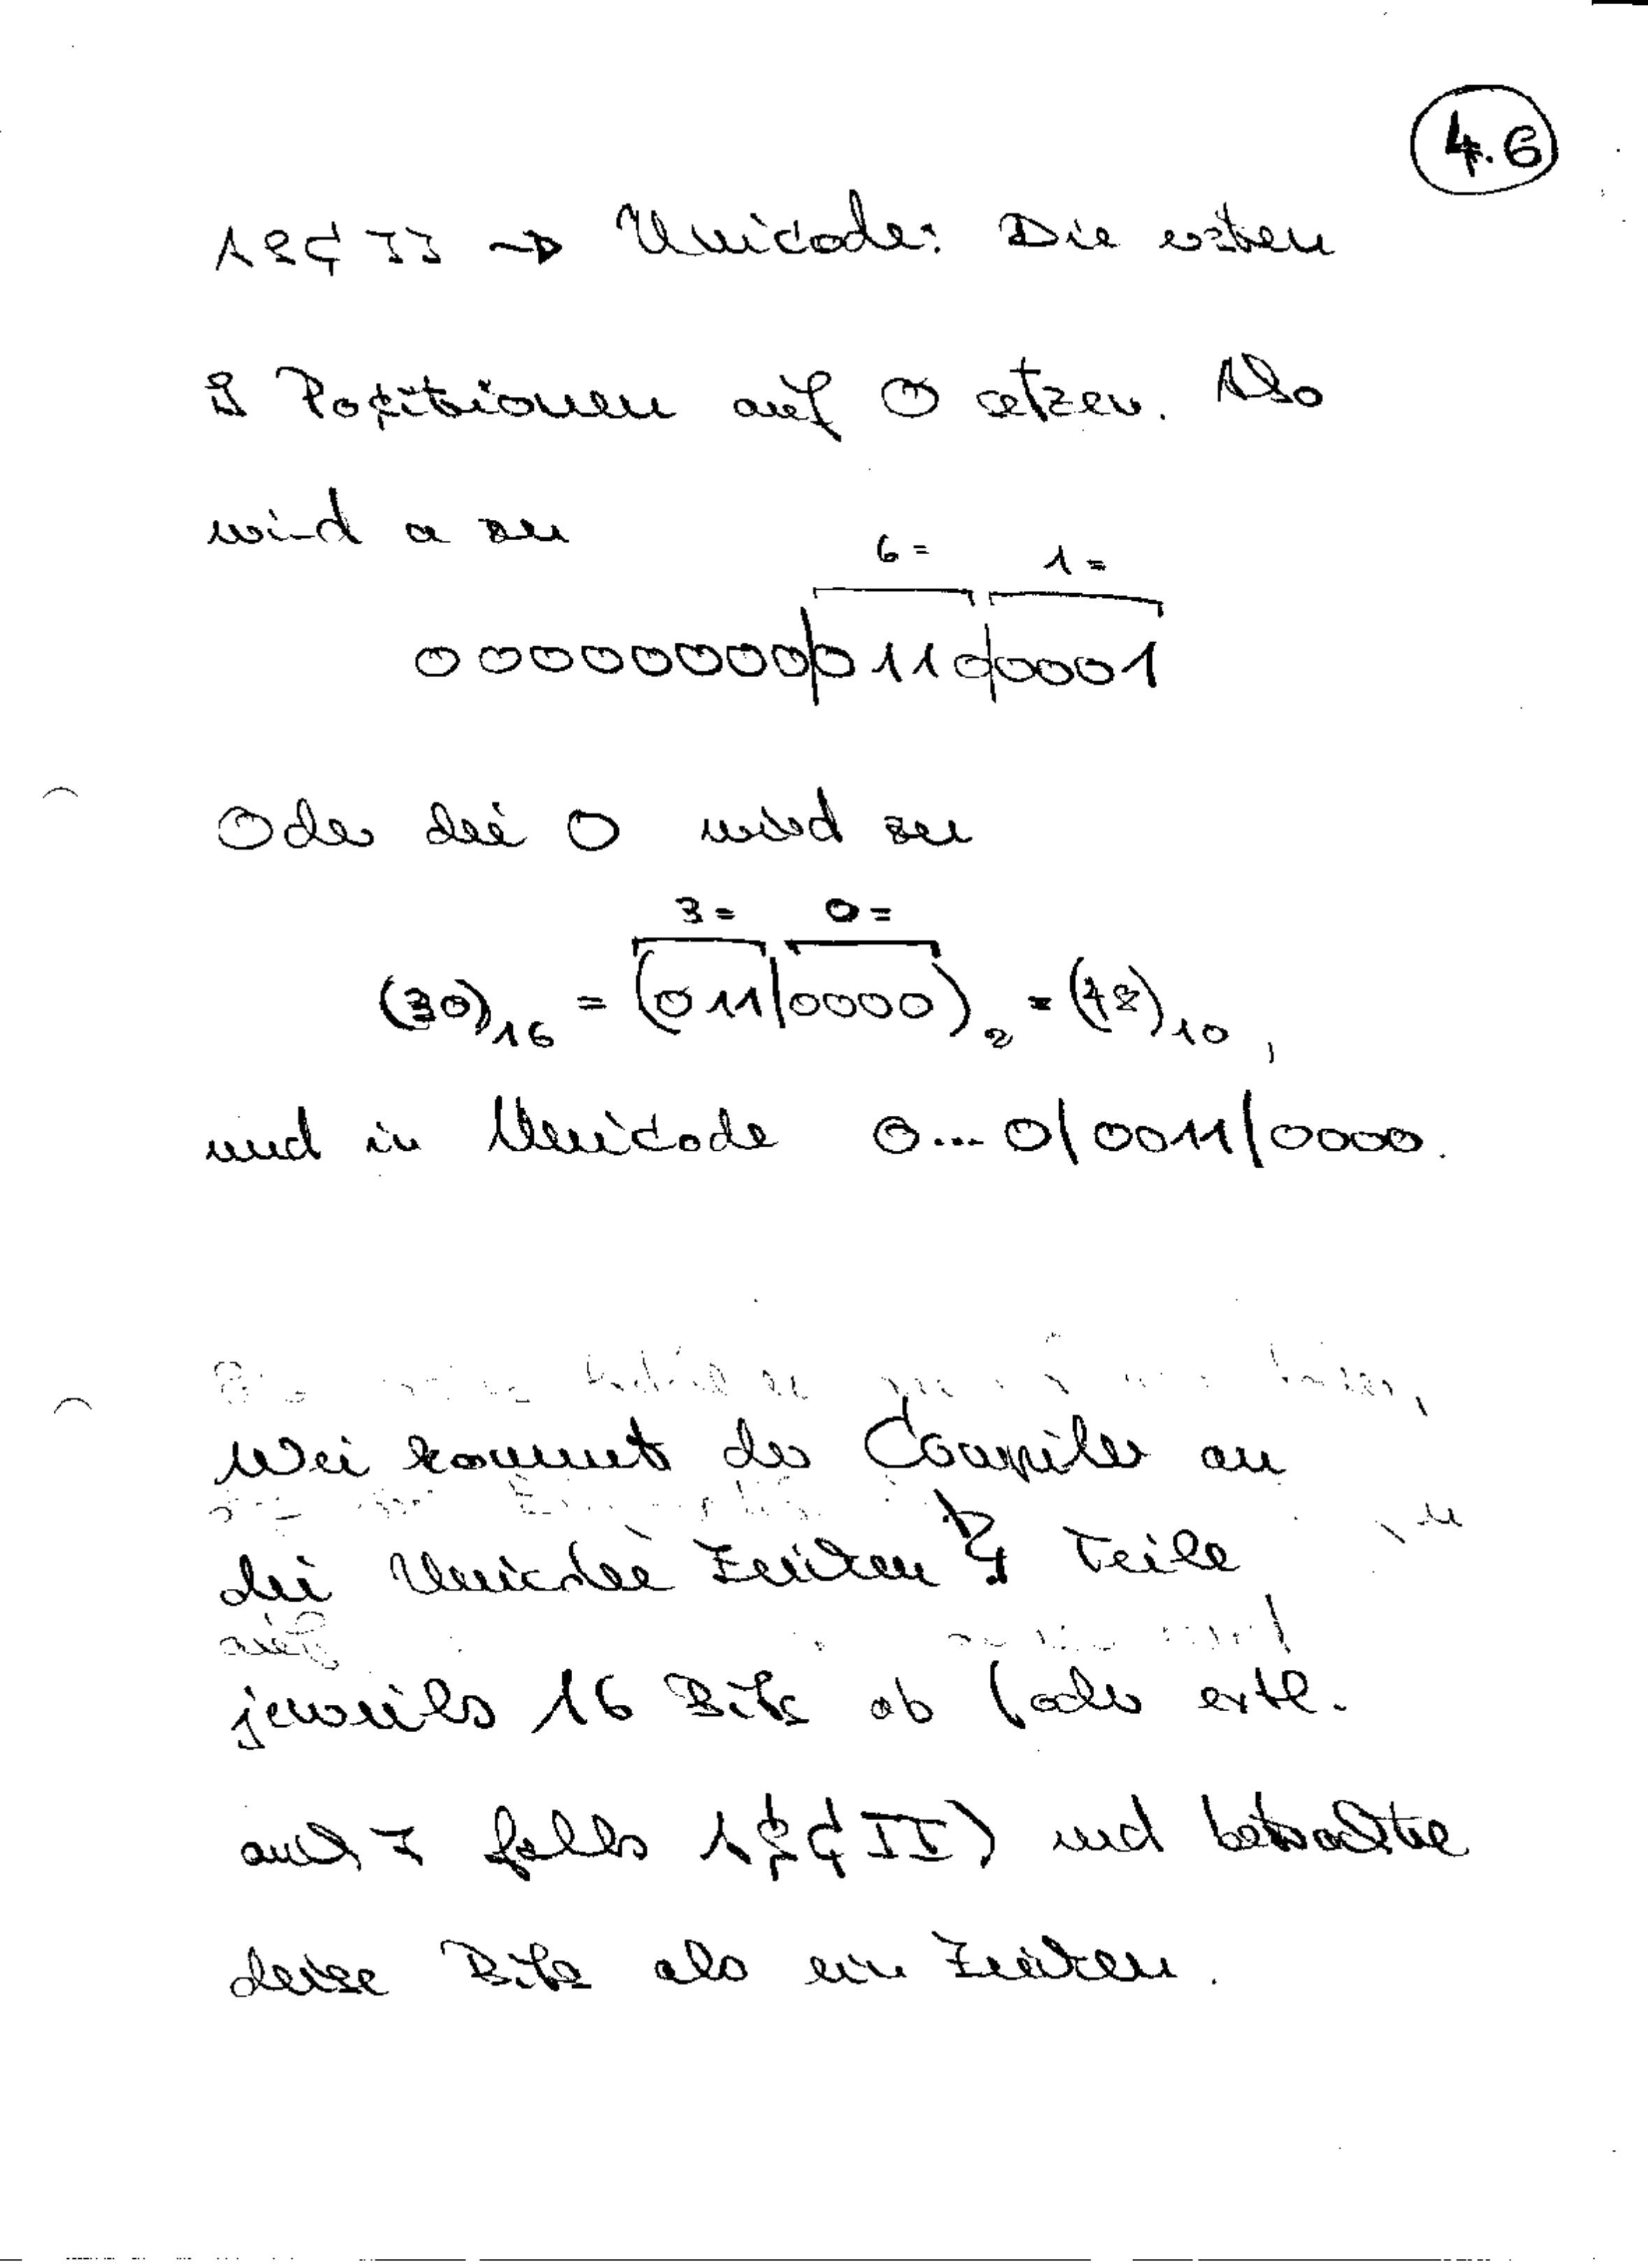 4.6
ASCII → Unicode: Die ersten
9 Positionen auf 0 setzen. Also
wird a zu
6 = 1 =
00000000|0110|0001
Oder die 0 wird zu
3 = 0 =
(30)₁₆ = (011|0000)₂ = (48)₁₀,
und in Unicode 0...0|0011|0000.
Wie kommt der Compiler an
die Unicode Zeichen? Teile
auf
jeweils 16 Bits ab (oder evtl.
auch 7 falls ASCII) und betrachte
diese Bits als ein Zeichen.